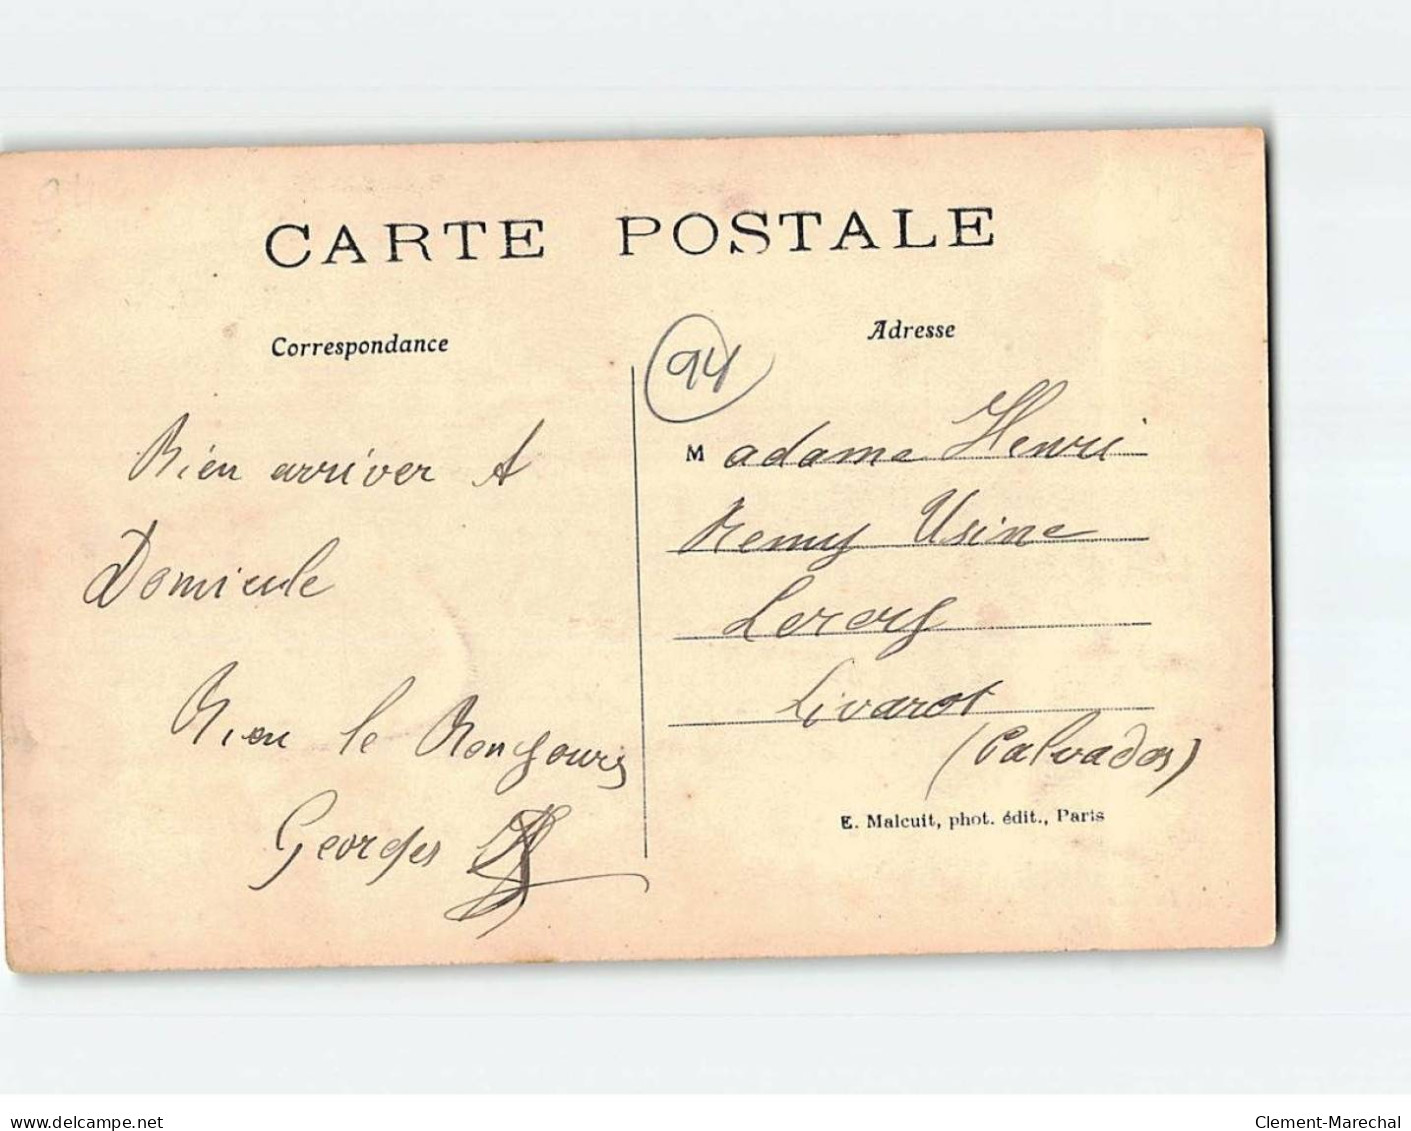 CARTE POSTALE
Correspondance
Adresse
94
Bien arriver A
Domicule
Bien le Bonjours
Georges
Madame Henri
Remy Usine
Livarot
(Calvados)
E. Malcuit, phot. édit., Paris
www.delcampe.net
Clement-Marechal